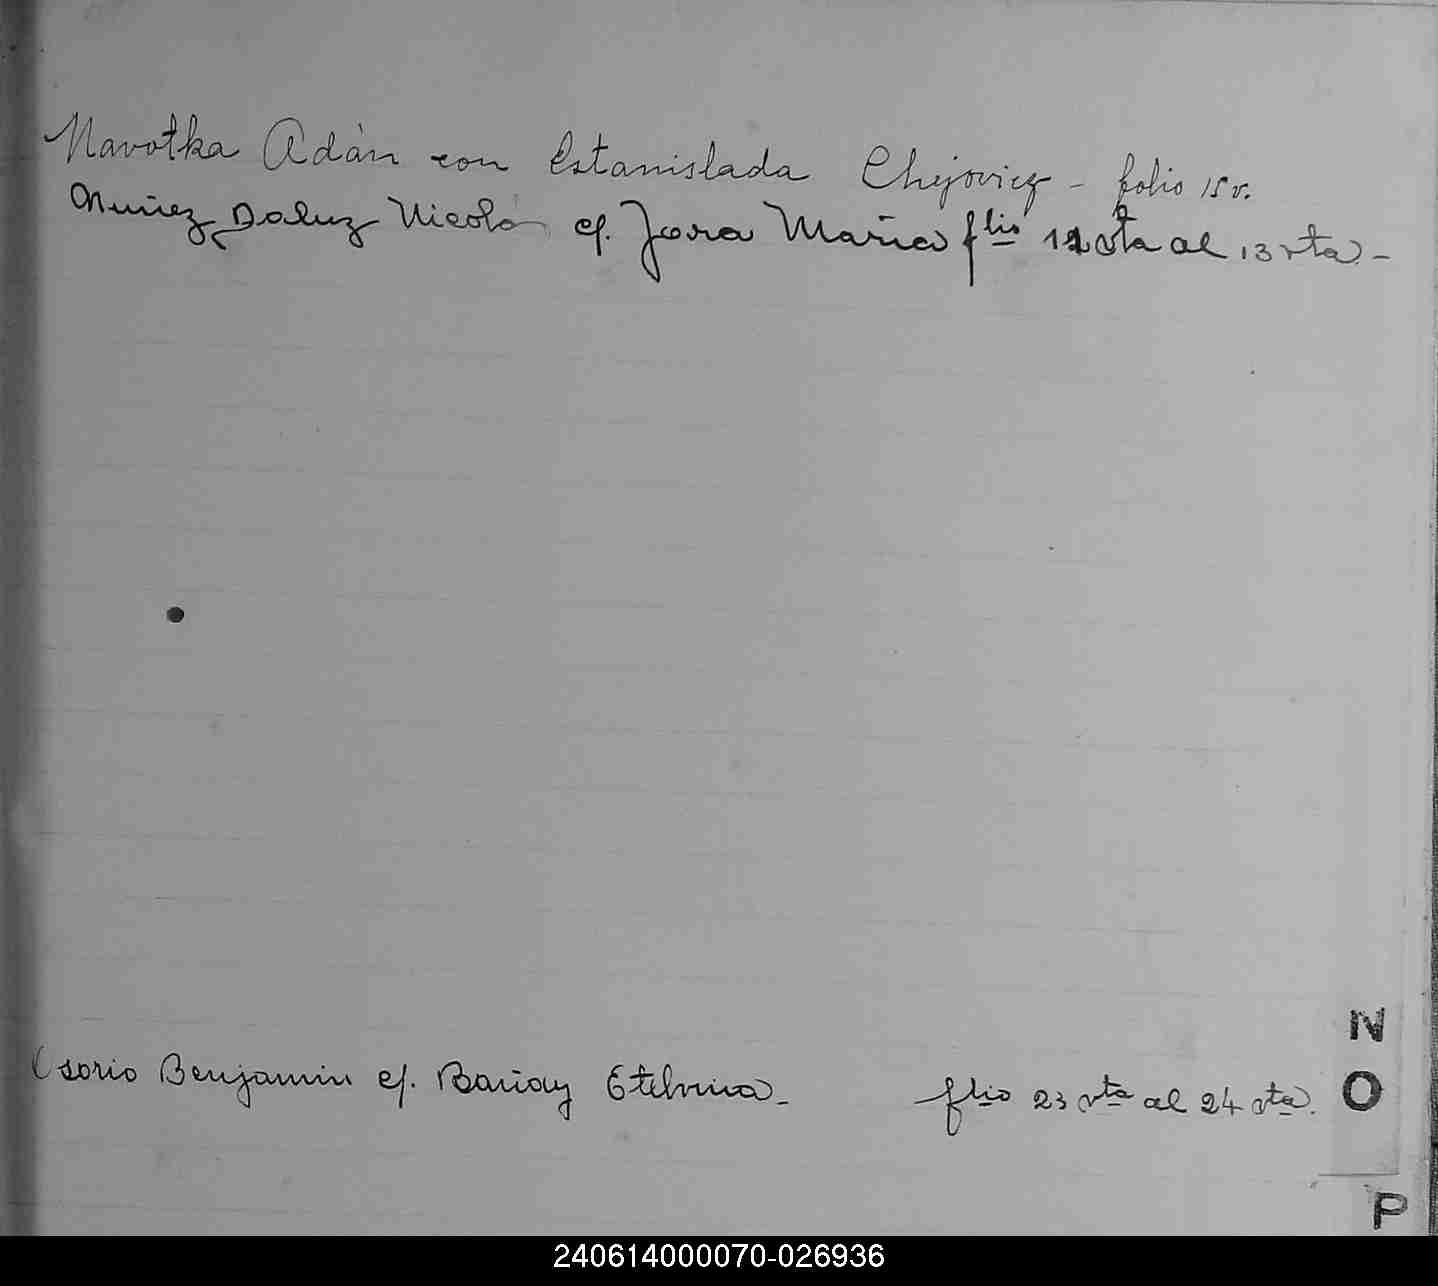 Navotka Adán con Estanislada Chejovicz - folio 15 v.
Nuñez Daluz Nicolá c/. Jara Maria flio 12 vta al 13 vta. -
Osorio Benjamin c/. Etelvina - flio 23 vta al 24 vta.
N
O
P
240614000070-026936